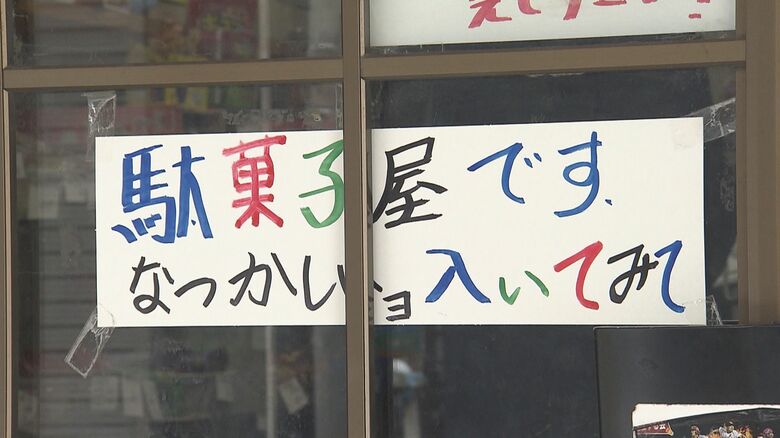 駄菓子屋です.
なつかしいョ入いてみて